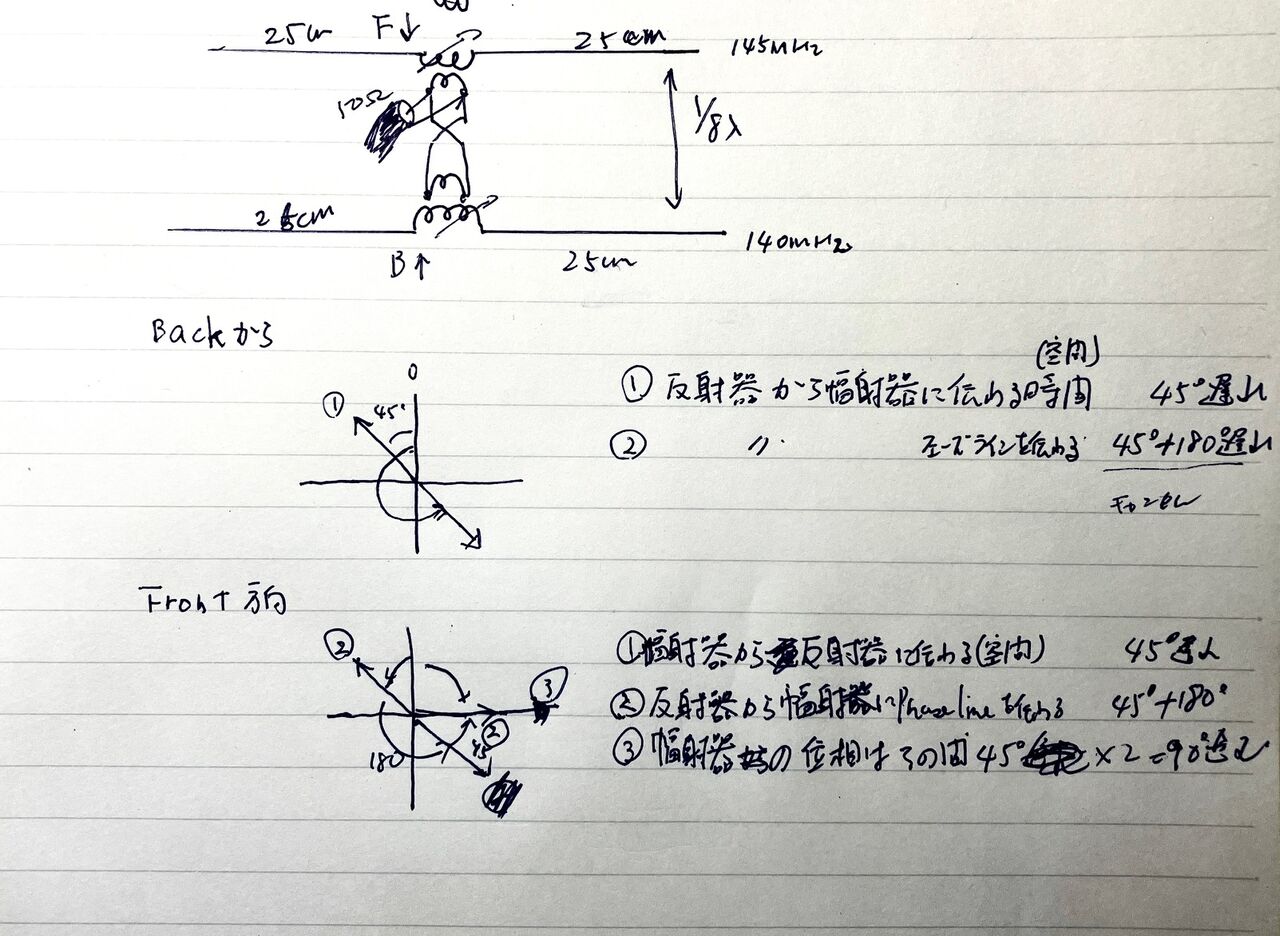 25cm F↓ 25cm 145MHz
50Ω
1/8λ
25cm 140MHz
B↑ 25cm
Backから
0
① 45°
(空間)
① 反射器から輻射器に伝わる時間 45°遅れ
② 〃 フェーズラインを伝わる 45°+180°遅れ
Front方向
② ③
180 45 ②
①輻射器から反射器に伝わる(空間) 45°遅れ
②反射器から輻射器にPhase lineを伝わる 45°+180°
③輻射器の位相はその間45° ×2=90°進む